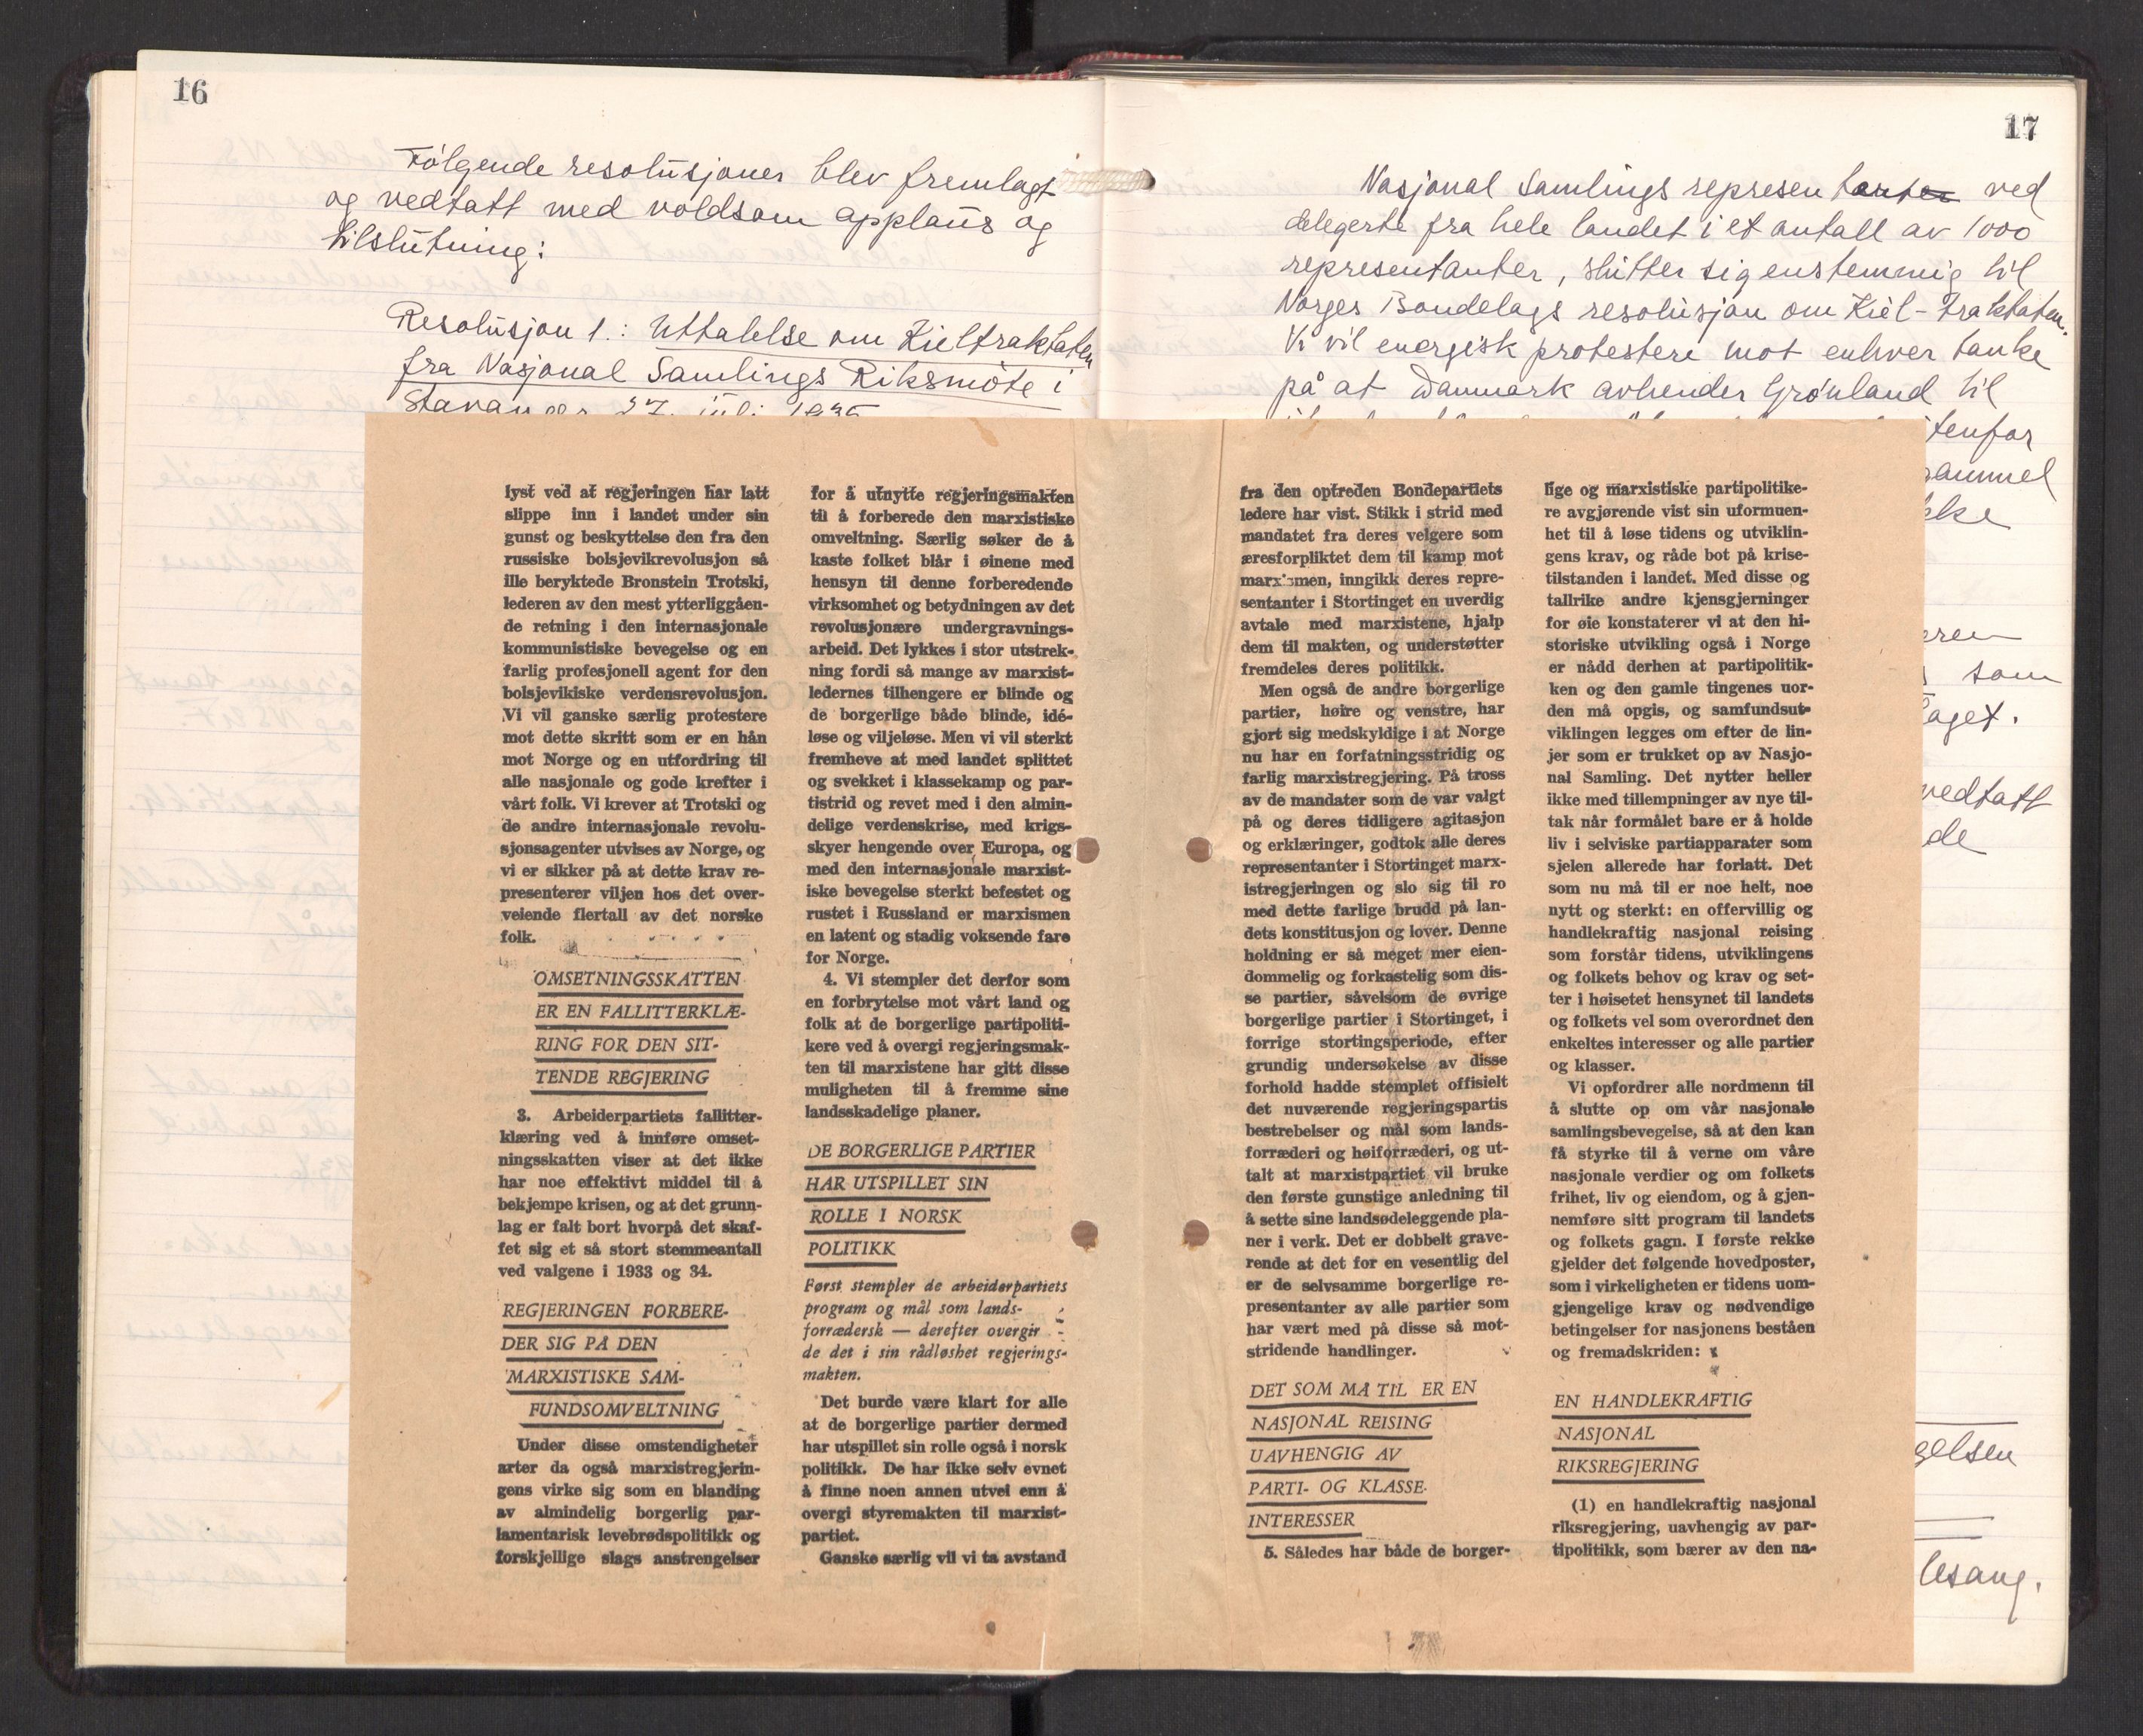 16
Følgende resolusjoner blev fremlagt
og vedtatt med voldsom applaus og
tilslutning:
Resolusjon 1.: Uttalelse om Kieltraktaten
fra Nasjonal Samlings Riksmöte i
Stavanger 27. juli
lyst ved at regjeringen har latt
slippe inn i landet under sin
gunst og beskyttelse den fra den
russiske bolsjevikrevolusjon så
ille beryktede Bronstein Trotski,
lederen av den mest ytterliggåen-
de retning i den internasjonale
kommunistiske bevegelse og en
farlig profesjonell agent for den
bolsjevikiske verdensrevolusjon.
Vi vil ganske særlig protestere
mot dette skritt som er en hån
mot Norge og en utfordring til
alle nasjonale og gode krefter i
vårt folk. Vi krever at Trotski og
de andre internasjonale revolu-
sjonsagenter utvises av Norge, og
vi er sikker på at dette krav re-
presenterer viljen hos det over-
veiende flertall av det norske
folk.
OMSETNINGSSKATTEN
ER EN FALLITTERKLÆ-
RING FOR DEN SIT-
TENDE REGJERING
3. Arbeiderpartiets fallitter-
klæring ved å innføre omset-
ningsskatten viser at det ikke
har noe effektivt middel til å
bekjempe krisen, og at det grunn-
lag er falt bort hvorpå det skaf-
fet sig et så stort stemmeantall
ved valgene i 1933 og 34.
REGJERINGEN FORBERE-
DER SIG PÅ DEN
MARXISTISKE SAM-
FUNDSOMVELTNING
Under disse omstendigheter
arter da også marxistregjerin-
gens virke sig som en blanding
av almindelig borgerlig par-
lamentarisk levebrødspolitikk og
forskjellige slags anstrengelser
for å utnytte regjeringsmakten
til å forberede den marxistiske
omveltning. Særlig søker de å
kaste folket blår i øinene med
hensyn til denne forberedende
virksomhet og betydningen av det
revolusjonære undergravnings-
arbeid. Det lykkes i stor utstrek-
ning fordi så mange av marxist-
ledernes tilhengere er blinde og
de borgerlige både blinde, idé-
løse og viljeløse. Men vi vil sterkt
fremheve at med landet splittet
og svekket i klassekamp og par-
tistrid og revet med i den almin-
delige verdenskrise, med krigs-
skyer hengende over Europa, og
med den internasjonale marxist-
iske bevegelse sterkt befestet og
rustet i Russland er marxismen
en latent og stadig voksende fare
for Norge.
4. Vi stempler det derfor som
en forbrytelse mot vårt land og
folk at de borgerlige partipoliti-
kere ved å overgi regjeringsmak-
ten til marxistene har gitt disse
muligheten til å fremme sine
landsskadelige planer.
DE BORGERLIGE PARTIER
HAR UTSPILLET SIN
ROLLE I NORSK
POLITIKK
Først stempler de arbeiderpartiets
program og mål som lands-
forrædersk — derefter overgir
de det i sin rådløshet regjerings-
makten.
Det burde være klart for alle
at de borgerlige partier dermed
har utspillet sin rolle også i norsk
politikk. De har ikke selv evnet
å finne noen annen utvei enn å
overgi styremakten til marxist-
partiet.
Ganske særlig vil vi ta avstand
17
Nasjonal Samlings representanter ved
delegerte fra hele landet i et antall av 1000
representanter, slutter sig enstemmig til
Norges Bondelags resolusjon om Kiel-Traktaten.
Vi vil energisk protestere mot enhver tanke
på at Danmark avhender Grønland til
tenfor
gammel
kke
eren
som
aget.
vedtatt
de
gelsen
lesang.
fra den optreden Bondepartiets
ledere har vist. Stikk i strid med
mandatet fra deres velgere som
æresforpliktet dem til kamp mot
marxismen, inngikk deres repre-
sentanter i Stortinget en uverdig
avtale med marxistene, hjalp
dem til makten, og understøtter
fremdeles deres politikk.
Men også de andre borgerlige
partier, høire og venstre, har
gjort sig medskyldige i at Norge
nu har en forfatningsstridig og
farlig marxistregjering. På tross
av de mandater som de var valgt
på og deres tidligere agitasjon
og erklæringer, godtok alle deres
representanter i Stortinget marx-
istregjeringen og slo sig til ro
med dette farlige brudd på lan-
dets konstitusjon og lover. Denne
holdning er så meget mer eien-
dommelig og forkastelig som dis-
se partier, såvelsom de øvrige
borgerlige partier i Stortinget, i
forrige stortingsperiode, efter
grundig undersøkelse av disse
forhold hadde stemplet offisielt
det nuværende regjeringspartis
bestrebelser og mål som lands-
forræderi og høiforræderi, og ut-
talt at marxistpartiet vil bruke
den første gunstige anledning til
å sette sine landsødeleggende pla-
ner i verk. Det er dobbelt grave-
rende at det for en vesentlig del
er de selvsamme borgerlige re-
presentanter av alle partier som
har vært med på disse så mot-
stridende handlinger.
DET SOM MÅ TIL ER EN
NASJONAL REISING
UAVHENGIG AV
PARTI- OG KLASSE-
INTERESSER
5. Således har både de borger-
lige og marxistiske partipolitike-
re avgjørende vist sin uformuen-
het til å løse tidens og utviklin-
gens krav, og råde bot på krise-
tilstanden i landet. Med disse og
tallrike andre kjensgjerninger
for øie konstaterer vi at den hi-
storiske utvikling også i Norge
er nådd derhen at partipolitik-
ken og den gamle tingenes uor-
den må opgis, og samfundsut-
viklingen legges om efter de lin-
jer som er trukket op av Nasjo-
nal Samling. Det nytter heller
ikke med tillempninger av nye til-
tak når formålet bare er å holde
liv i selviske partiapparater som
sjelen allerede har forlatt. Det
som nu må til er noe helt, noe
nytt og sterkt: en offervillig og
handlekraftig nasjonal reising
som forstår tidens, utviklingens
og folkets behov og krav og set-
ter i høisetet hensynet til landets
og folkets vel som overordnet den
enkeltes interesser og alle partier
og klasser.
Vi opfordrer alle nordmenn til
å slutte op om vår nasjonale
samlingsbevegelse, så at den kan
få styrke til å verne om våre
nasjonale verdier og om folkets
frihet, liv og eiendom, og å gjen-
nemføre sitt program til landets
og folkets gagn. I første rekke
gjelder det følgende hovedposter,
som i virkeligheten er tidens uom-
gjengelige krav og nødvendige
betingelser for nasjonens beståen
og fremadskriden:
EN HANDLEKRAFTIG
NASJONAL
RIKSREGJERING
(1) en handlekraftig nasjonal
riksregjering, uavhengig av par-
tipolitikk, som bærer av den na-